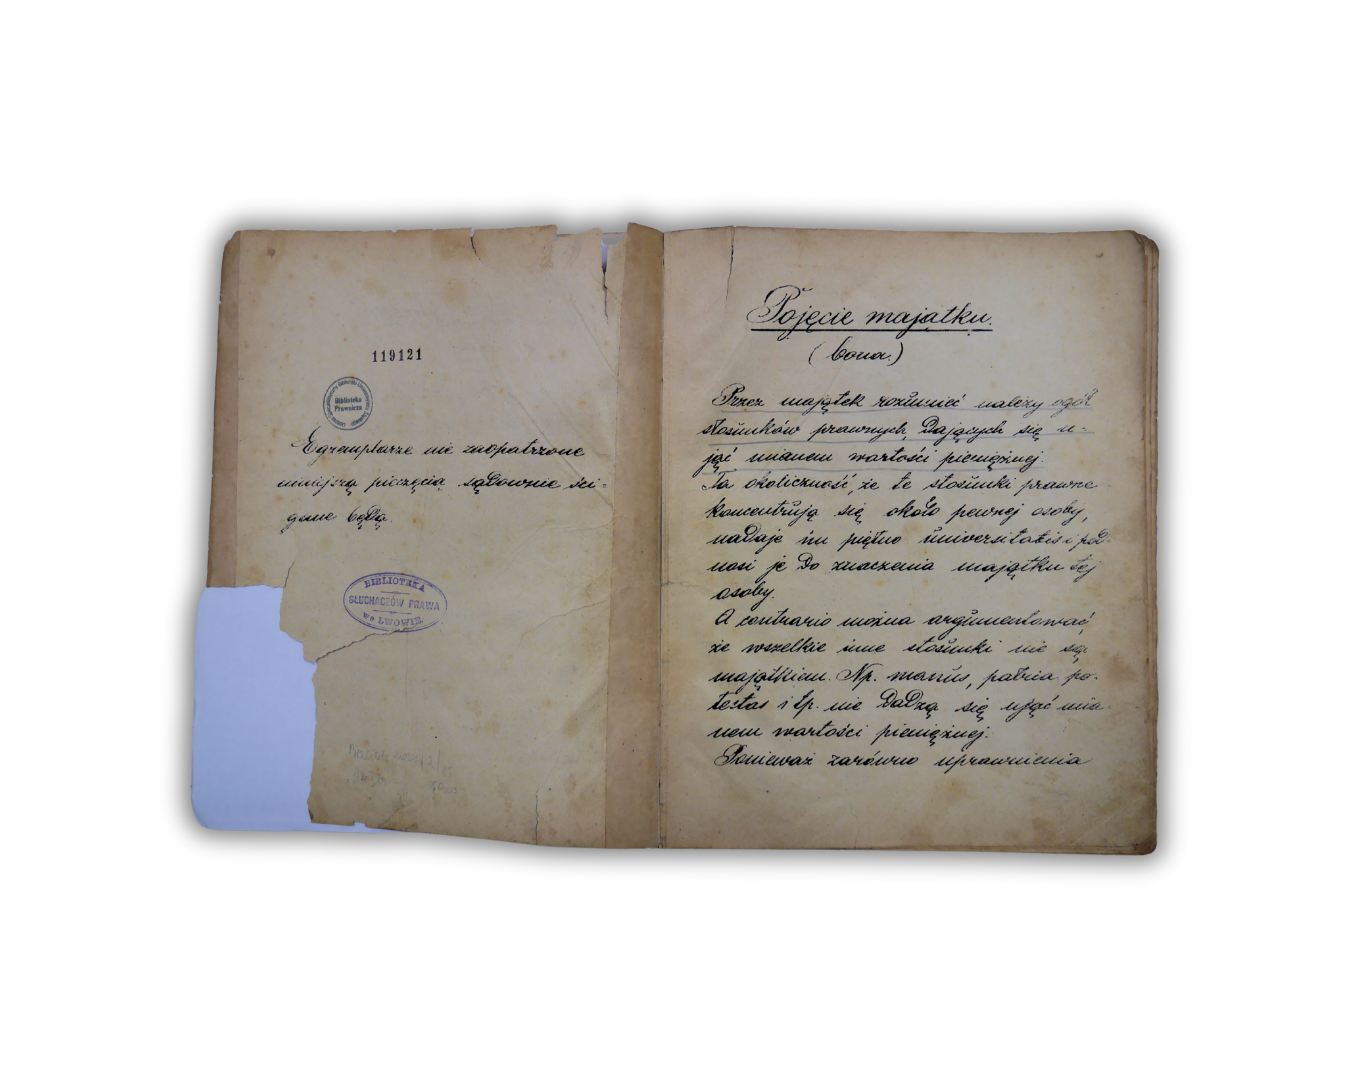 119121
Biblioteka
Prawnicza
Egzemplarze nie zaopatrzone
niniejszą pieczęcią sądownie ści=
gane będą.
BIBLIOTEKA
SŁUCHACZÓW PRAWA
we LWOWIE
Pojęcie majątku.
(bona.)
Przez majątek rozumieć należy ogół
stosunków prawnych, dających się u-
jąć mianem wartości pieniężnej.
Ta okoliczność, że te stosunki prawne
koncentrują się około pewnej osoby,
nadaje im piętno universitatis i pod-
nosi je do znaczenia majątku tej
osoby.
A contrario można argumentować,
że wszelkie inne stosunki nie są
majątkiem. Np. manus, patria po-
testas i tp. nie dadzą się ująć mia-
nem wartości pieniężnej.
Ponieważ zarówno uprawnienia